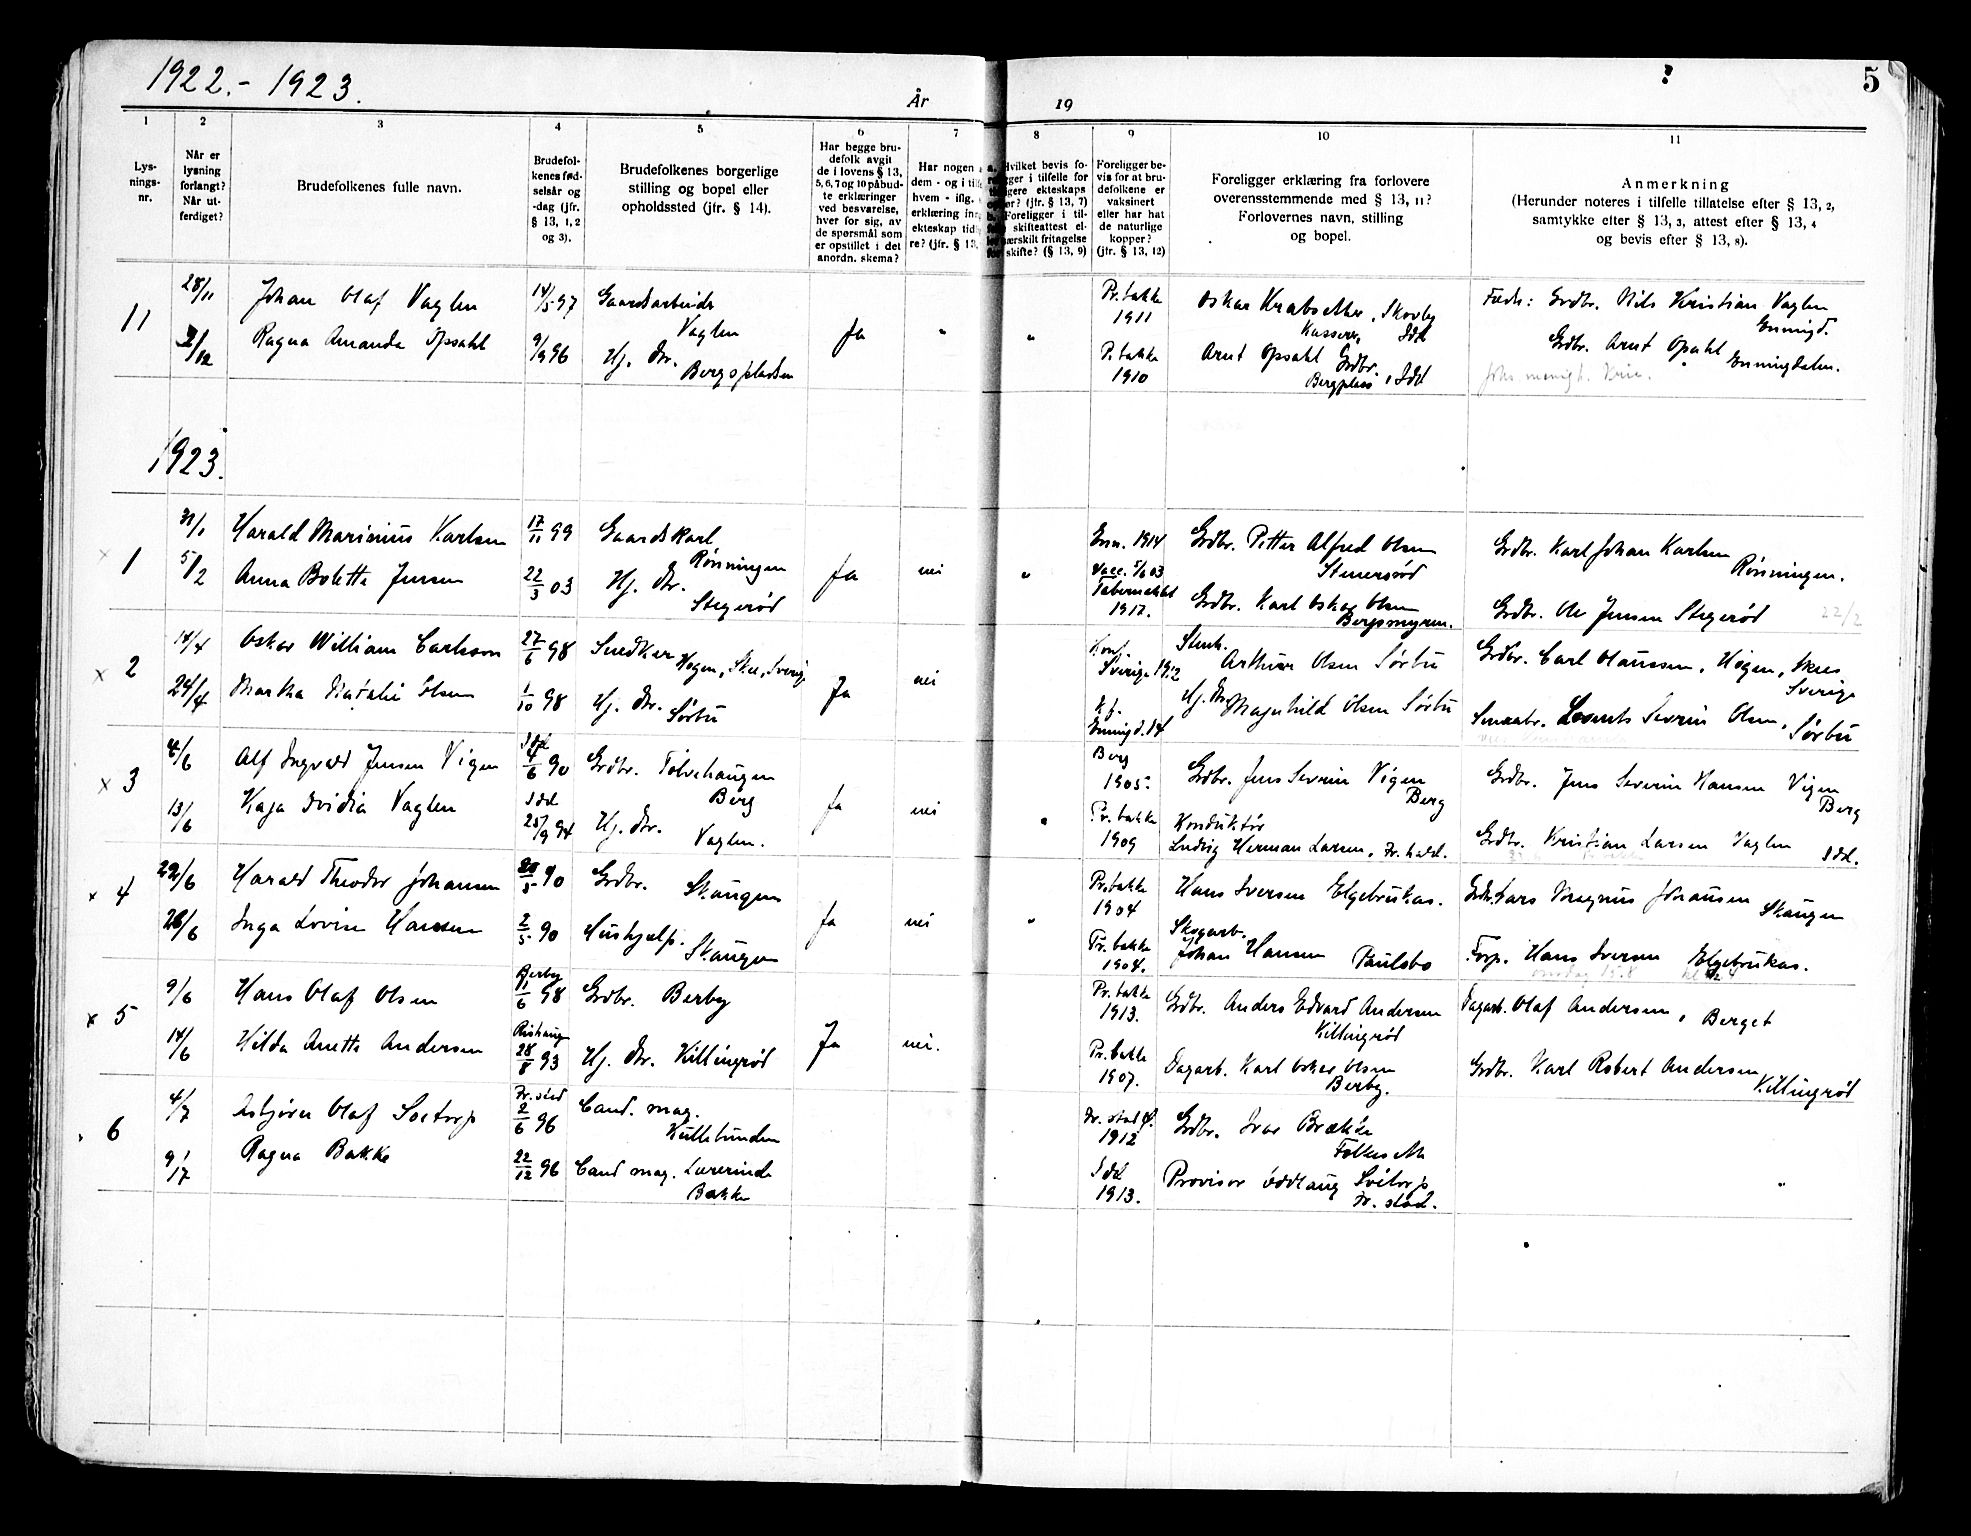 1922.- 1923.
År
19
5
1
2
3
4
5
6
7
8
9
10
11
Lys-
nings-
nr.
Når er
lysning
forlangt?
Når ut-
ferdiget?
Brudefolkenes fulle navn.
Brudefol-
kenes fød-
selsår og
-dag (jfr.
§ 13, 1, 2
og 3).
Brudefolkenes borgerlige
stilling og bopel eller
opholdssted (jfr. § 14).
Har begge bru-
defolk avgit
de i lovens § 13,
5, 6, 7 og 10 påbud-
te erklæringer
ved besvarelse,
hver for sig, av
de spørsmål som
er opstillet i det
anordn. skema?
Har nogen
dem - og i
hvem - iflg.
erklæring
ekteskap
re? (jfr. § 13,
Hvilket bevis fo-
i tilfelle for
ekteskaps
(jfr. § 13, 7)
Foreligger i til-
skifteattest el-
særskilt fritagelse
skifte? (§ 13, 9)
Foreligger be-
vis for at bru-
defolkene er
vaksinert
eller har hat
de naturlige
kopper?
(jfr. § 13, 12)
Foreligger erklæring fra forlovere
overensstemmende med § 13, 11?
Forlovernes navn, stilling
og bopel.
Anmerkning
(Herunder noteres i tilfelle tillatelse efter § 13, 2,
samtykke efter § 13, 3, attest efter § 13, 4
og bevis efter § 13, 8).
11
28/11 Johan Olaf Vaglen 14/5 97 Gaardsarbeider
Vaglen
Pr.bakke
1911
Oskar Krabsether, Skovby
Kasserer, Idd
Fædr: Grdbr. Nils Kristian Vaglen
Enningd.
2/12 Ragna Amanda Opsahl 9/9 96 Hj. Dtr.
Bergspladsen
Ja " "
P.bakke
1910
Arnt Opsahl Grdbr.
Bergplass, Idd
Grdbr. Arnt Opsahl Enningdalen.
1923.
x 1
31/1 Harald Marinius Karlsen 17/11 99 Gaardskarl
Rønningen
Enn. 1914
Grdbr. Petter Alfred Olsen
Stenersrød
Grdbr. Karl Johan Karlsen
Rønningen.
5/2 Anna Bolette Jensen 22/3 03 Hj. Dtr.
Stegerød
Ja nei "
Vacc. 5/6 03
Tabernaklet
1917.
Grdbr. Karl Oskar Olsen
Bergsmyren.
Grdbr. Ole Jensen Stegerød 22/2
x 2
14/4 Oskar William Carlsson 27/6 98 Snedker
Hogen, Skee, Sverige
Konf.
Sverige 1912
Stenh.
Arthur Olsen Sørbü
Grdbr. Carl Olaussen, Högen, Skee
Sverige
24/4 Martha Natalie Olsen 1/10 98 Hj. Dtr.
Sørbü
Ja nei
K.f.
Enningd. 14
Hj. Dtr.
Magnhild Olsen Sørbü
Severin Olsen,
Sørbü
x 3
4/6 Alf Ingvald Jensen Vigen
Idd
4/6 90 Grdbr. Tolvehaugen
Berg
Berg
1905.
Grdbr. Jens Severin Vigen
Berg
Grdbr. Jens Severin Hansen Vigen
Berg
13/6 Kaja Ovidia Vaglen
Idd
25/9 94 Hj. Dtr.
Vaglen.
Ja nei "
Pr.bakke
1909
Konduktør
Ludvig Herman Larsen, Fr.hald.
Grdbr. Kristian Larsen Vaglen
Idd.
x 4
22/6 Harald Theodor Johansen 28/5 90 Grdbr.
Skaugen
Pr.bakke
1904
Hans Iversen Elgebrukas.
Grdbr. Lars Magnus Johansen
Skaugen
26/6 Inga Lovise Hansen 2/5 90 Hushjelp.
Skaugen
Ja nei "
Pr.bakke
1904.
Skogarb.
Johan Hansen Paulsbo
Forp. Hans Iversen Elgebrukas.
x 5
9/6 Hans Olaf Olsen
Berby
11/6 98 Grdbr. Berby
Pr.bakke
1913.
Grdbr. Anders Edvard Andersen
Killingrød
Dagarb. Olaf Andersen, Berget
14/6 Hilda Anette Andersen
Rishaug
28/8 93 Hj. Dtr. Killingrød
Ja nei.
Pr.bakke
1907.
Dagarb. Karl Oskar Olsen
Berby.
Grdbr. Karl Robert Andersen
Killingrød
6
4/7 Asbjørn Olaf Soetorp
Fr.stad
2/6 96 Cand. mag.
Kullebunden
Fr. stad
1912
Grdbr. Ivar Brække
9/7 Ragna Bakke 22/12 96 Cand mag. Lærerinde
Bakke
Idd
1913.
Provisor Oddlaug Soetorp
Fr. stad.
"